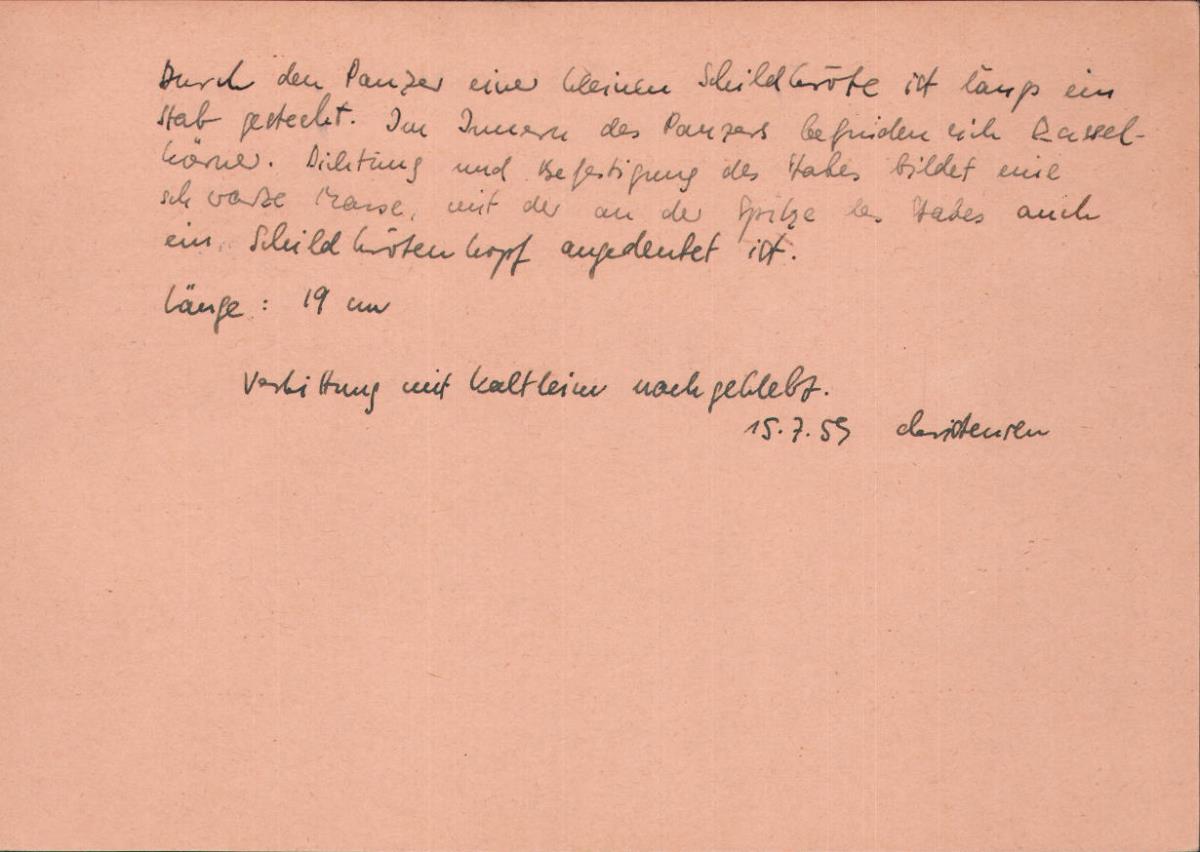 Durch den Panzer einer kleinen Schildkröte ist längs ein
Stab gesteckt. Im Innern des Panzers befinden sich Rassel-
körner. Dichtung und Befestigung des Stabes bildet eine
schwarze Masse, mit der an der Spitze des Stabes auch
ein Schildkrötenkopf angedeutet ist.
Länge: 19 cm
Verkittung mit Kaltleim nachgeklebt.
15.7.59 Christensen